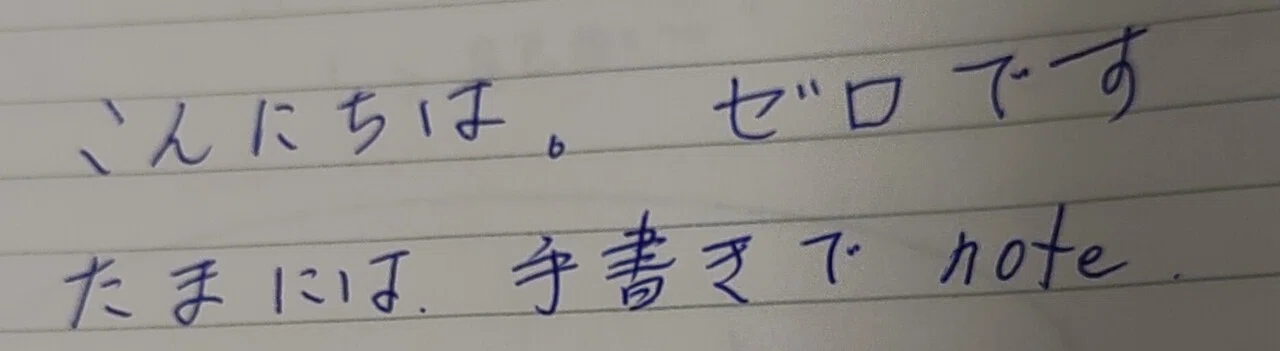 こんにちは。 ゼロです
たまには. 手書きで note.